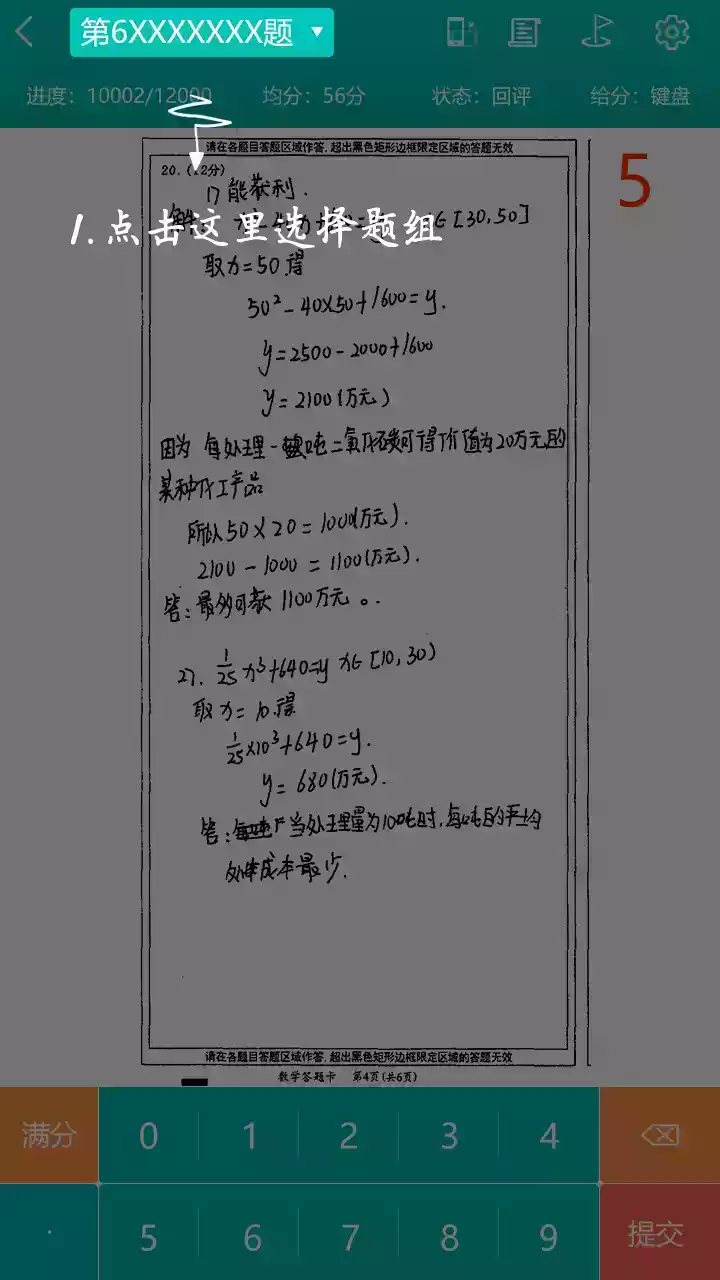 第6XXXXXXX题 ▼
进度：10002/12000 均分：56分 状态：回评 给分：键盘
请在各题目答题区域作答，超出黑色矩形边框限定区域的答题无效
5
20.（12分）
1) 能获利.
1.点击这里选择题组
∈[30,50]
取x=50得
50²-40×50+1600=y.
y=2500-2000+1600
y=2100(万元)
因为 每处理一吨二氧化碳可得价值为20万元的
某种化工产品
所以50×20=1000(万元).
2100-1000=1100(万元).
答:最多可获1100万元。.
2). 1/25 x³+640=y x∈[10,30)
取x=10.得
1/25×10³+640=y.
y=680(万元).
答: 当处理量为10吨时,每吨的平均
处理成本最少.
请在各题目答题区域作答，超出黑色矩形边框限定区域的答题无效
数学答题卡 第4页(共6页)
满分 0 1 2 3 4
· 5 6 7 8 9 提交